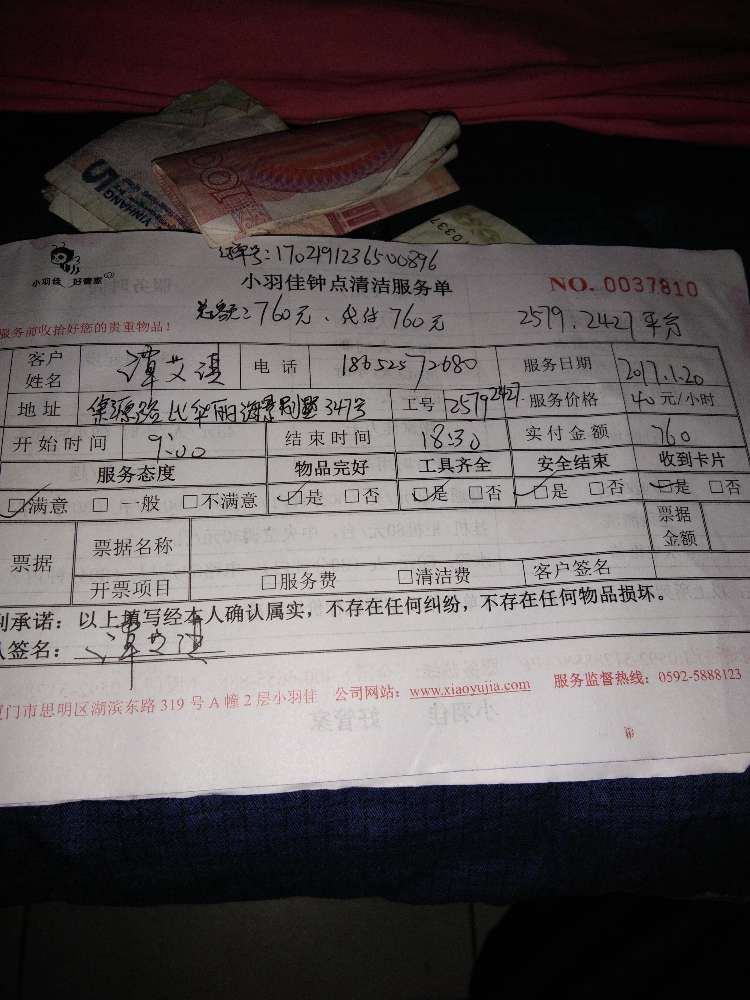 5
YINHANG
100
10337
单号:1702191236500896
小羽佳 好管家
小羽佳钟点清洁服务单
NO. 0037810
总额:760元、代付760元
2579.2427平台
服务前收拾好您的贵重物品!
客户姓名 谭艾淇 电话 18652572680 服务日期 2017.1.20
地址 集源路比华丽海景别墅347号 工号 2579 2427 服务价格 40元/小时
开始时间 9:00 结束时间 18:30 实付金额 760
服务态度 物品完好 工具齐全 安全结束 收到卡片
☑满意 □ 一般 □不满意 ☑是 □否 ☑是 □否 ☑是 □否 ☑是 □否
票据 票据名称 票据金额
开票项目 □服务费 □清洁费 客户签名
承诺:以上填写经本人确认属实,不存在任何纠纷,不存在任何物品损坏。
签名:谭艾淇
厦门市思明区湖滨东路 319 号 A 幢 2 层小羽佳 公司网站:www.xiaoyujia.com 服务监督热线:0592-5888123